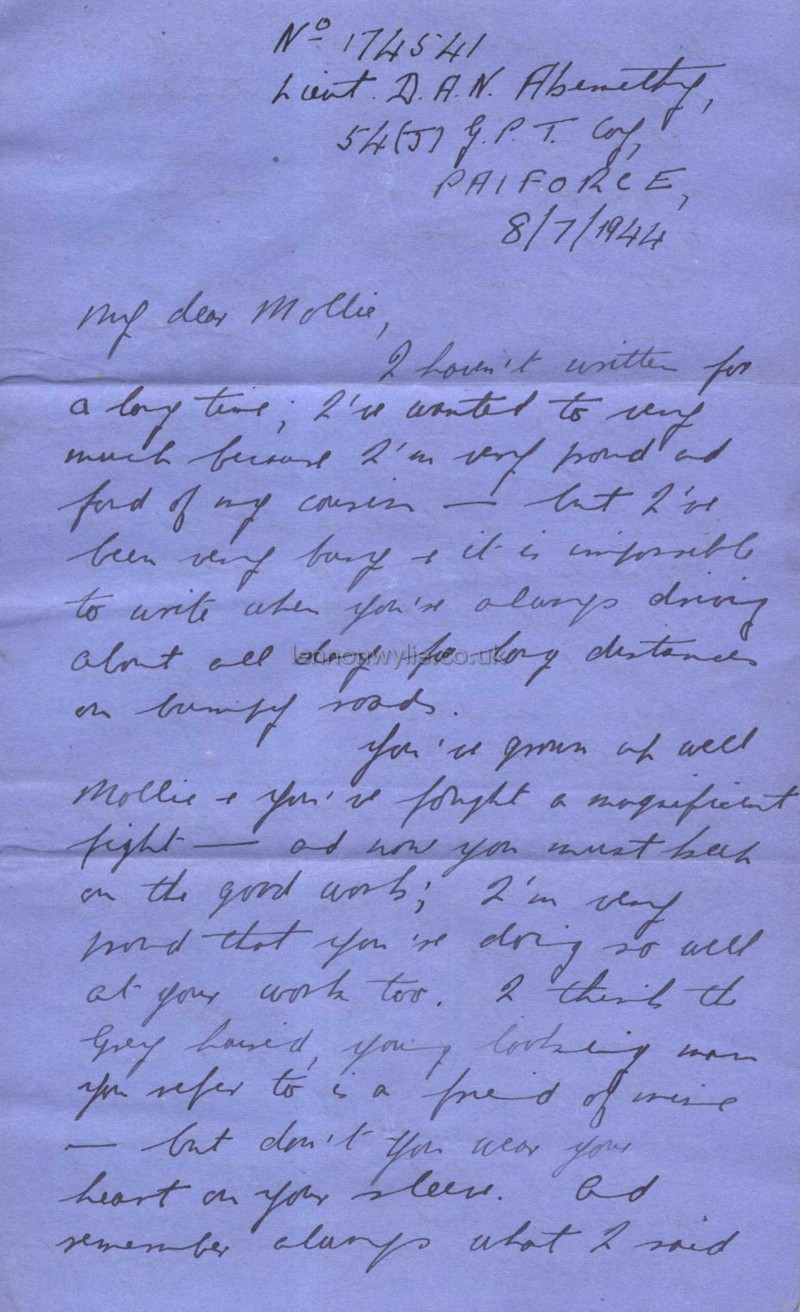 No 174541
Lieut. D.A.N. Abernethy,
54(J) G.P.T. Coy,
PAIFORCE,
8/7/1944
My dear Mollie,
I haven't written for
a long time; I've wanted to very
much because I'm very proud and
fond of my cousin — but I've
been very busy + it is impossible
to write when you're always driving
about all day for long distances
on bumpy roads.
You've grown up well
Mollie + you've fought a magnificent
fight — and now you must keep
on the good work; I'm very
proud that you're doing so well
at your work too. I think the
Grey haired, young looking man
you refer to is a friend of mine
— but don't you wear your
heart on your sleeve. And
remember always what I said
lennonwylie.co.uk